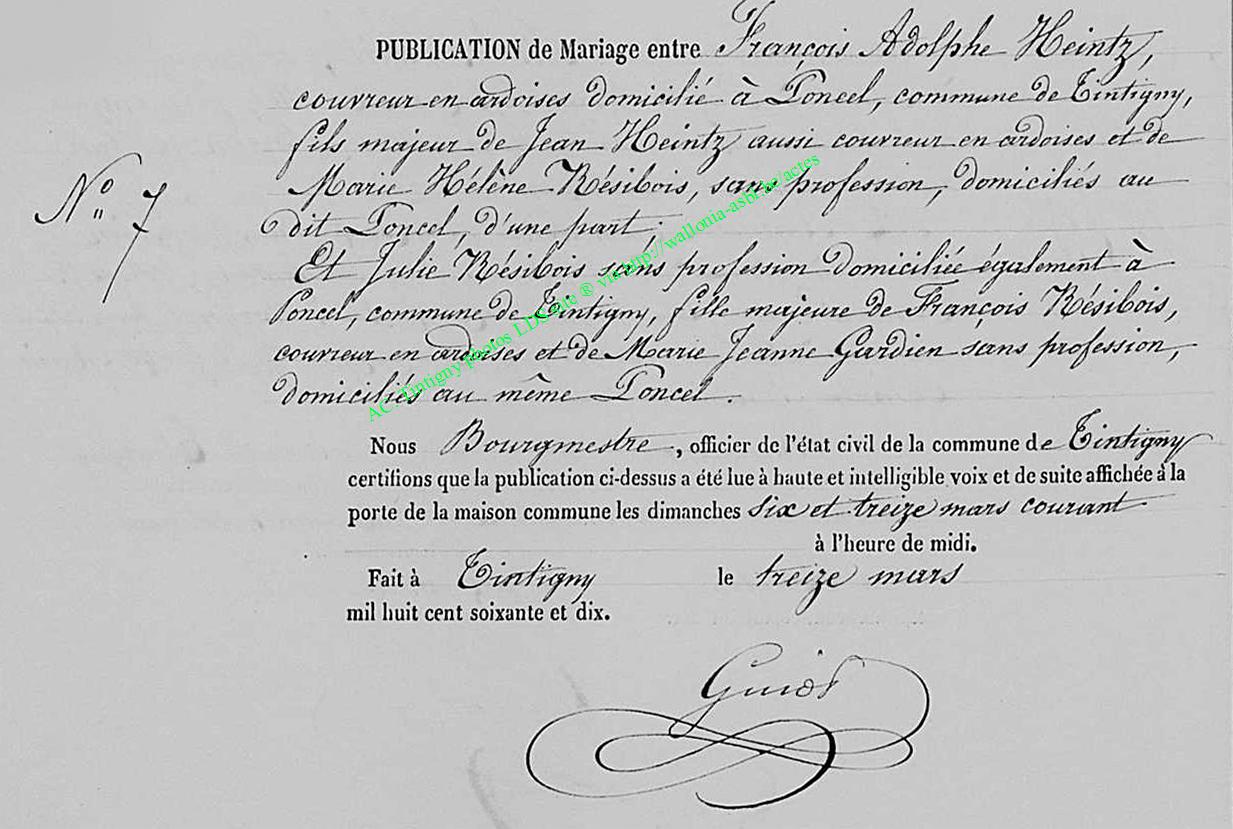 PUBLICATION de Mariage entre François Adolphe Heintz,
couvreur en ardoises domicilié à Poncel, commune de Tintigny,
fils majeur de Jean Heintz aussi couvreur en ardoises et de
Marie Hélène Résibois, sans profession, domiciliés au
dit Poncel, d'une part;
N° 7
Et Julie Résibois sans profession domiciliée également à
Poncel, commune de Tintigny, fille majeure de François Résibois,
couvreur en ardoises et de Marie Jeanne Gardien sans profession,
domiciliés au même Poncel.
Nous Bourgmestre, officier de l'état civil de la commune de Tintigny
certifions que la publication ci-dessus a été lue à haute et intelligible voix et de suite affichée à la
porte de la maison commune les dimanches six et treize mars courant
à l'heure de midi.
Fait à Tintigny le treize mars
mil huit cent soixante et dix.
Guiot
AC. Tintigny photos LDS site ® via http://wallonia-asbl.be/actes